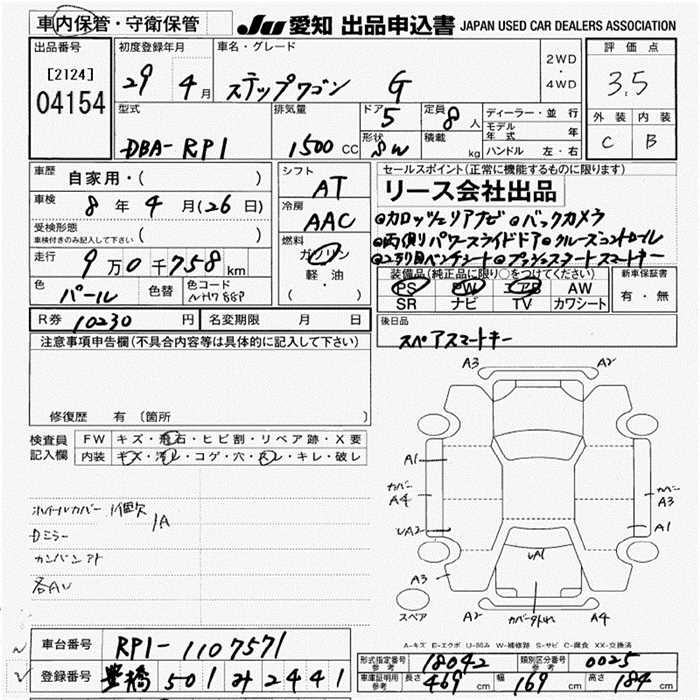 車内保管・守衛保管
JU 愛知 出品申込書 JAPAN USED CAR DEALERS ASSOCIATION
出品番号 初度登録年月 車名・グレード 2WD・4WD 評価点
[2124]
04154
29 4月 ステップワゴン G 3.5
型式 排気量 ドア 5 定員 8人 ディーラー・並行 外装 内装
DBA-RP1 1500CC 形状 SW 積載 kg モデル年式 年 C B
ハンドル 左・右
車歴 自家用・( ) シフト AT セールスポイント(正常に機能するものに限ります)
リース会社出品
車検 8年4月(26日) 冷房 AAC
受検形態 ( )
車検付きのみ記入して下さい
◎カロッツェリアナビ ◎バックカメラ
◎両側パワースライドドア ◎クルーズコントロール
◎2列目ベンチシート ◎プッシュスタートスマートキー
走行 9万0千758km 燃料 ガソリン 軽油 ( ・ )
色 パール 色替 色コード NH788P
装備品(純正品に限り○をつけてください) 新車保証書
PS PW AB AW 有・無
SR ナビ TV カワシート
R券 10230円 名変期限 月 日 後日品
スペアスマートキー
注意事項申告欄(不具合内容等は具体的に記入して下さい)
修復歴 有 (箇所
検査員記入欄 FW キズ・飛石・ヒビ割・リペア跡・X要
内装 キズ・汚レ・コゲ・穴・スレ・キレ・破レ
A3 A2
A1
カバー A4
カバー A3
UA2
A1
UA1
A3
スペア A2 カバー外れ A4
ホイールカバー 1個欠
1A
Dミラー
カンバンアト
各AU
A-キズ E-エクボ U-凹み W-補修跡 S-サビ C-腐食 XX-交換済
車台番号 RP1-1107571
登録番号 豊橋 501 み 2441
形式指定番号 参考 18042 類別区分番号 参考 0025
車庫証明用 参考 長さ 469cm 幅 169cm 高さ 184cm